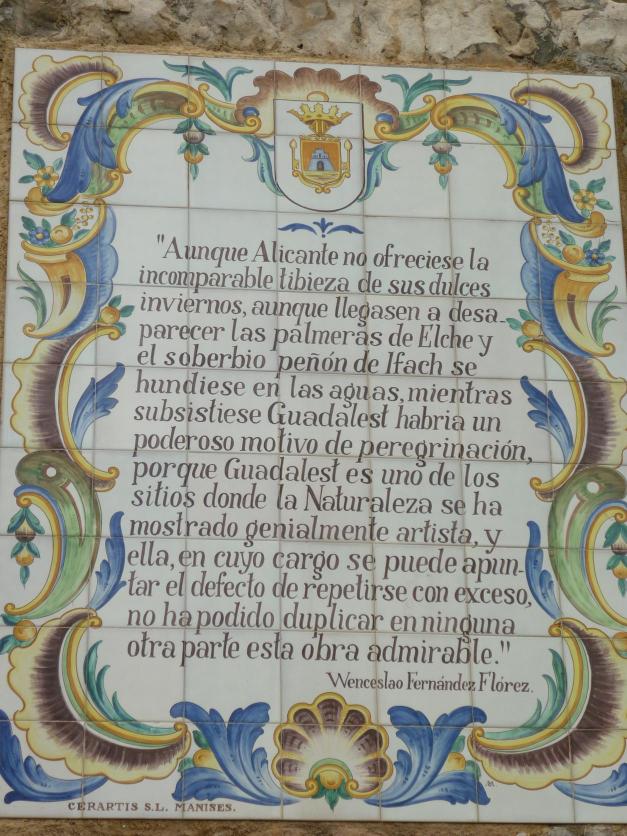 "Aunque Alicante no ofreciese la
incomparable tibieza de sus dulces
inviernos, aunque llegasen a desa-
parecer las palmeras de Elche y
el soberbio peñón de Ifach se
hundiese en las aguas, mientras
subsistiese Guadalest habria un
poderoso motivo de peregrinación,
porque Guadalest es uno de los
sitios donde la Naturaleza se ha
mostrado genialmente artista, y
ella, en cuyo cargo se puede apun-
tar el defecto de repetirse con exceso,
no ha podido duplicar en ninguna
otra parte esta obra admirable."
Wenceslao Fernández Flórez.
CERARTIS S.L. MANISES.